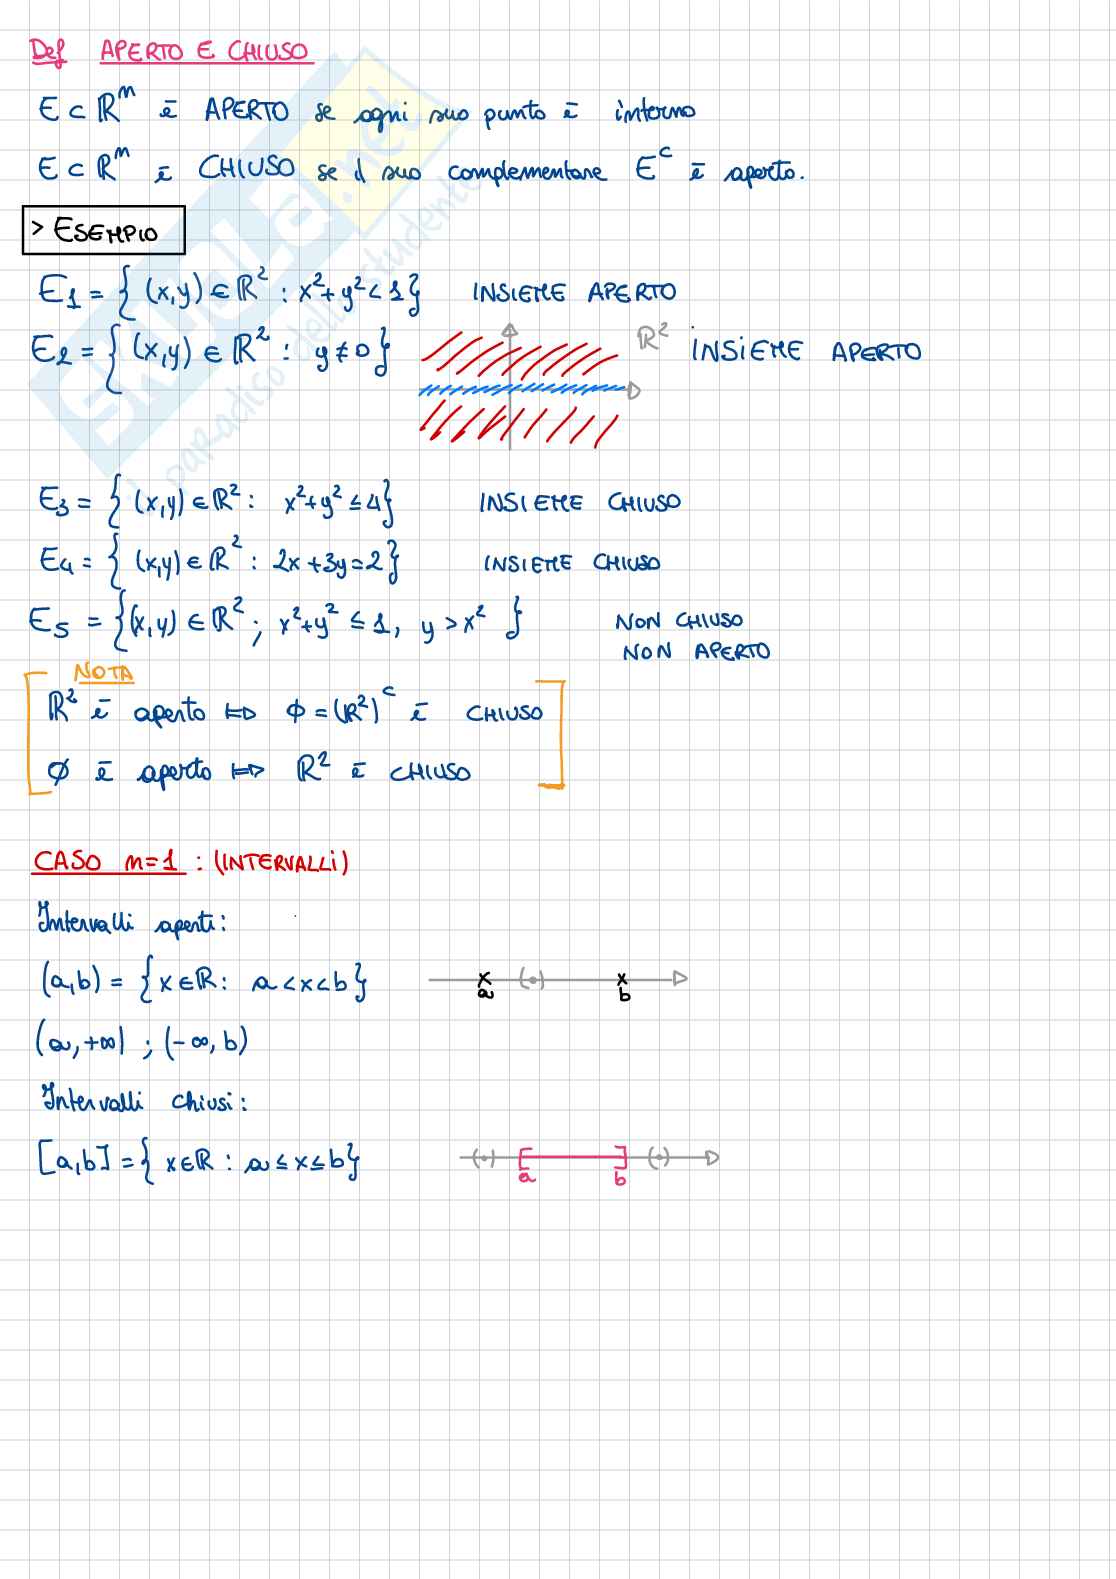 Def APERTO E CHIUSO
E ⊂ ℝᵐ ē APERTO se ogni suo punto ē interno
E ⊂ ℝᵐ ē CHIUSO se il suo complementare Eᶜ ē aperto.
> ESEMPIO
E₁ = { (x,y) ∈ ℝ² : x²+y² < 1} INSIEME APERTO
E₂ = { (x,y) ∈ ℝ² : y ≠ 0} ℝ² INSIEME APERTO
E₃ = { (x,y) ∈ ℝ² : x²+y² ≤ 4} INSIEME CHIUSO
E₄ = { (x,y) ∈ ℝ² : 2x+3y=2} INSIEME CHIUSO
E₅ = {(x,y) ∈ ℝ² ; x²+y² ≤ 1, y > x² } NON CHIUSO
NON APERTO
NOTA
ℝ² ē aperto ⟺ ϕ = (ℝ²)ᶜ ē CHIUSO
∅ ē aperto ⟺ ℝ² ē CHIUSO
CASO m=1 : (INTERVALLi)
Intervalli aperti:
(a,b) = { x∈ℝ : a < x < b} a b
(a, +∞) ; (-∞, b)
Intervalli chiusi:
[a,b] = { x∈ℝ : a ≤ x ≤ b} a b
SKUOLA.net
il paradiso dello studente